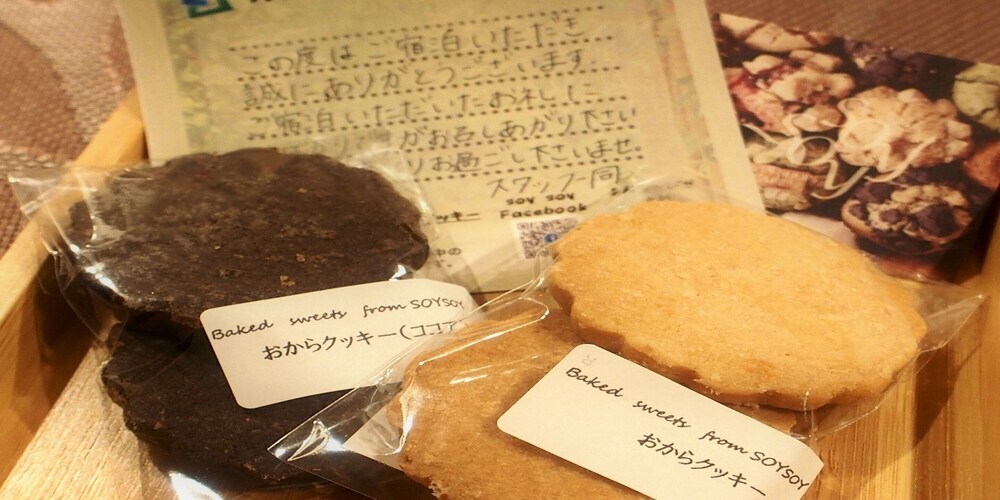 この度はご宿泊いただき
誠にありがとうございます。
ご宿泊いただいたお礼に
がお召しあがり下さい
りお過ごし下さいませ
スタッフ一同
soy soy
ッキー Facebook
Baked sweets from SOYSOY
おからクッキー(ココア
Baked sweets from SOYSOY
おからクッキー